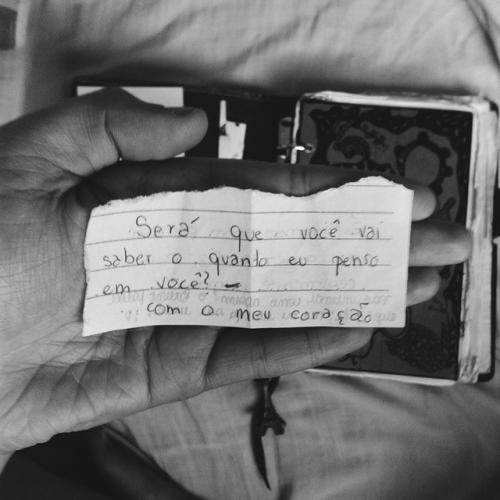 Será que você vai
saber o quanto eu penso
em você? –
com o meu coração